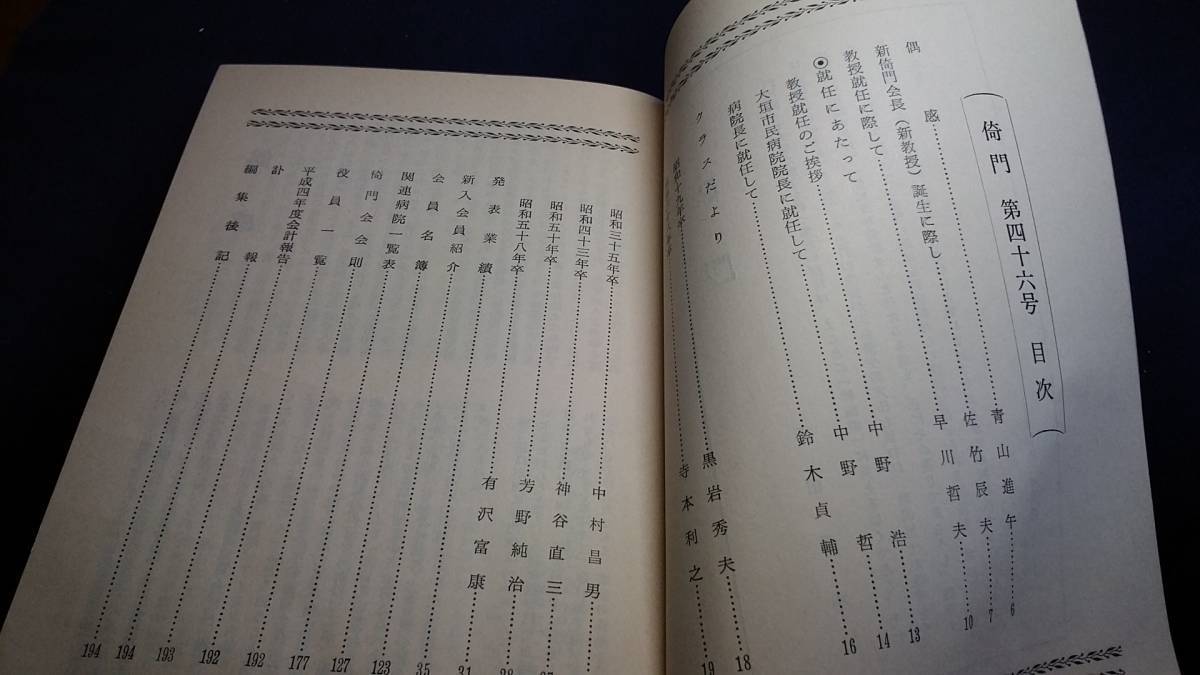 倚門 第四十六号 目次
偶感……青山進午……6
新倚門会長(新教授)誕生に際し……佐竹辰夫……7
教授就任に際して……早川哲夫……10
◉就任にあたって
教授就任のご挨拶……中野浩……13
大垣市民病院院長に就任して……中野哲……14
病院長に就任して……鈴木貞輔……16
クラスだより
昭和十九年卒……黒岩秀夫……18
寺本利之……19
昭和三十五年卒……中村昌男
昭和四十三年卒……神谷直三……27
昭和五十年卒……芳野純治……28
昭和五十八年卒……有沢富康……31
発表業績……35
新入会員紹介……123
会員名簿……127
関連病院一覧表……177
倚門会会則……192
役員一覧……192
平成四年度会計報告……193
訃報……194
編集後記……194